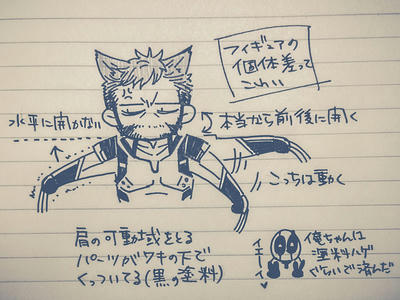 フィギュアの
個体差って
こわい
水平に開かない
本当なら前後に開く
こっちは動く
肩の可動域をとる
パーツがワキの下で
くっついてる(黒の塗料)
イエーイ
俺ちゃんは
塗料ハゲ
ぐらいで済んだ